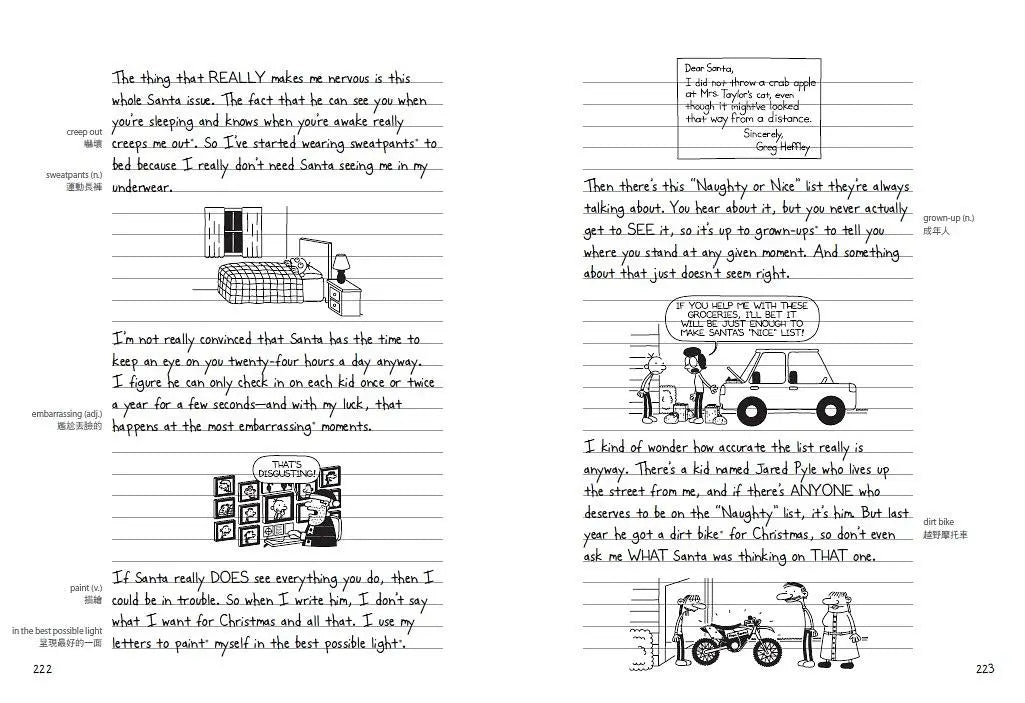 The thing that REALLY makes me nervous is this
whole Santa issue. The fact that he can see you when
you're sleeping and knows when you're awake really
creep out
嚇壞
creeps me out*. So I've started wearing sweatpants* to
sweatpants (n.)
運動長褲
bed because I really don't need Santa seeing me in my
underwear.
I'm not really convinced that Santa has the time to
keep an eye on you twenty-four hours a day anyway.
I figure he can only check in on each kid once or twice
a year for a few seconds—and with my luck, that
embarrassing (adj.)
尷尬丟臉的
happens at the most embarrassing* moments.
THAT'S
DISGUSTING!
If Santa really DOES see everything you do, then I
paint (v.)
描繪
could be in trouble. So when I write him, I don't say
what I want for Christmas and all that. I use my
in the best possible light
呈現最好的一面
letters to paint* myself in the best possible light*.
222
Dear Santa,
I did not throw a crab apple
at Mrs. Taylor's cat, even
though it might've looked
that way from a distance.
Sincerely,
Greg Heffley
Then there's this "Naughty or Nice" list they're always
talking about. You hear about it, but you never actually
get to SEE it, so it's up to grown-ups* to tell you
grown-up (n.)
成年人
where you stand at any given moment. And something
about that just doesn't seem right.
IF YOU HELP ME WITH THESE
GROCERIES, I'LL BET IT
WILL BE JUST ENOUGH TO
MAKE SANTA'S "NICE" LIST!
I kind of wonder how accurate the list really is
anyway. There's a kid named Jared Pyle who lives up
the street from me, and if there's ANYONE who
deserves to be on the "Naughty" list, it's him. But last
year he got a dirt bike* for Christmas, so don't even
dirt bike
越野摩托車
ask me WHAT Santa was thinking on THAT one.
223